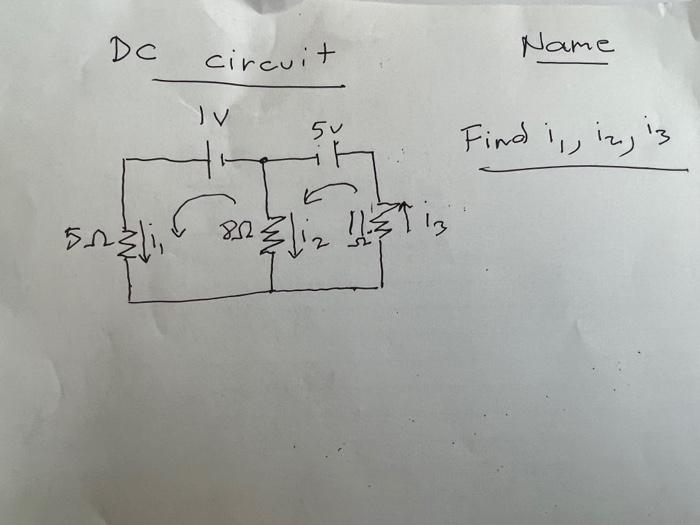 DC circuit
Name
Find i₁, i₂, i₃
1V
5V
5Ω
i₁
8Ω
i₂
11Ω
i₃